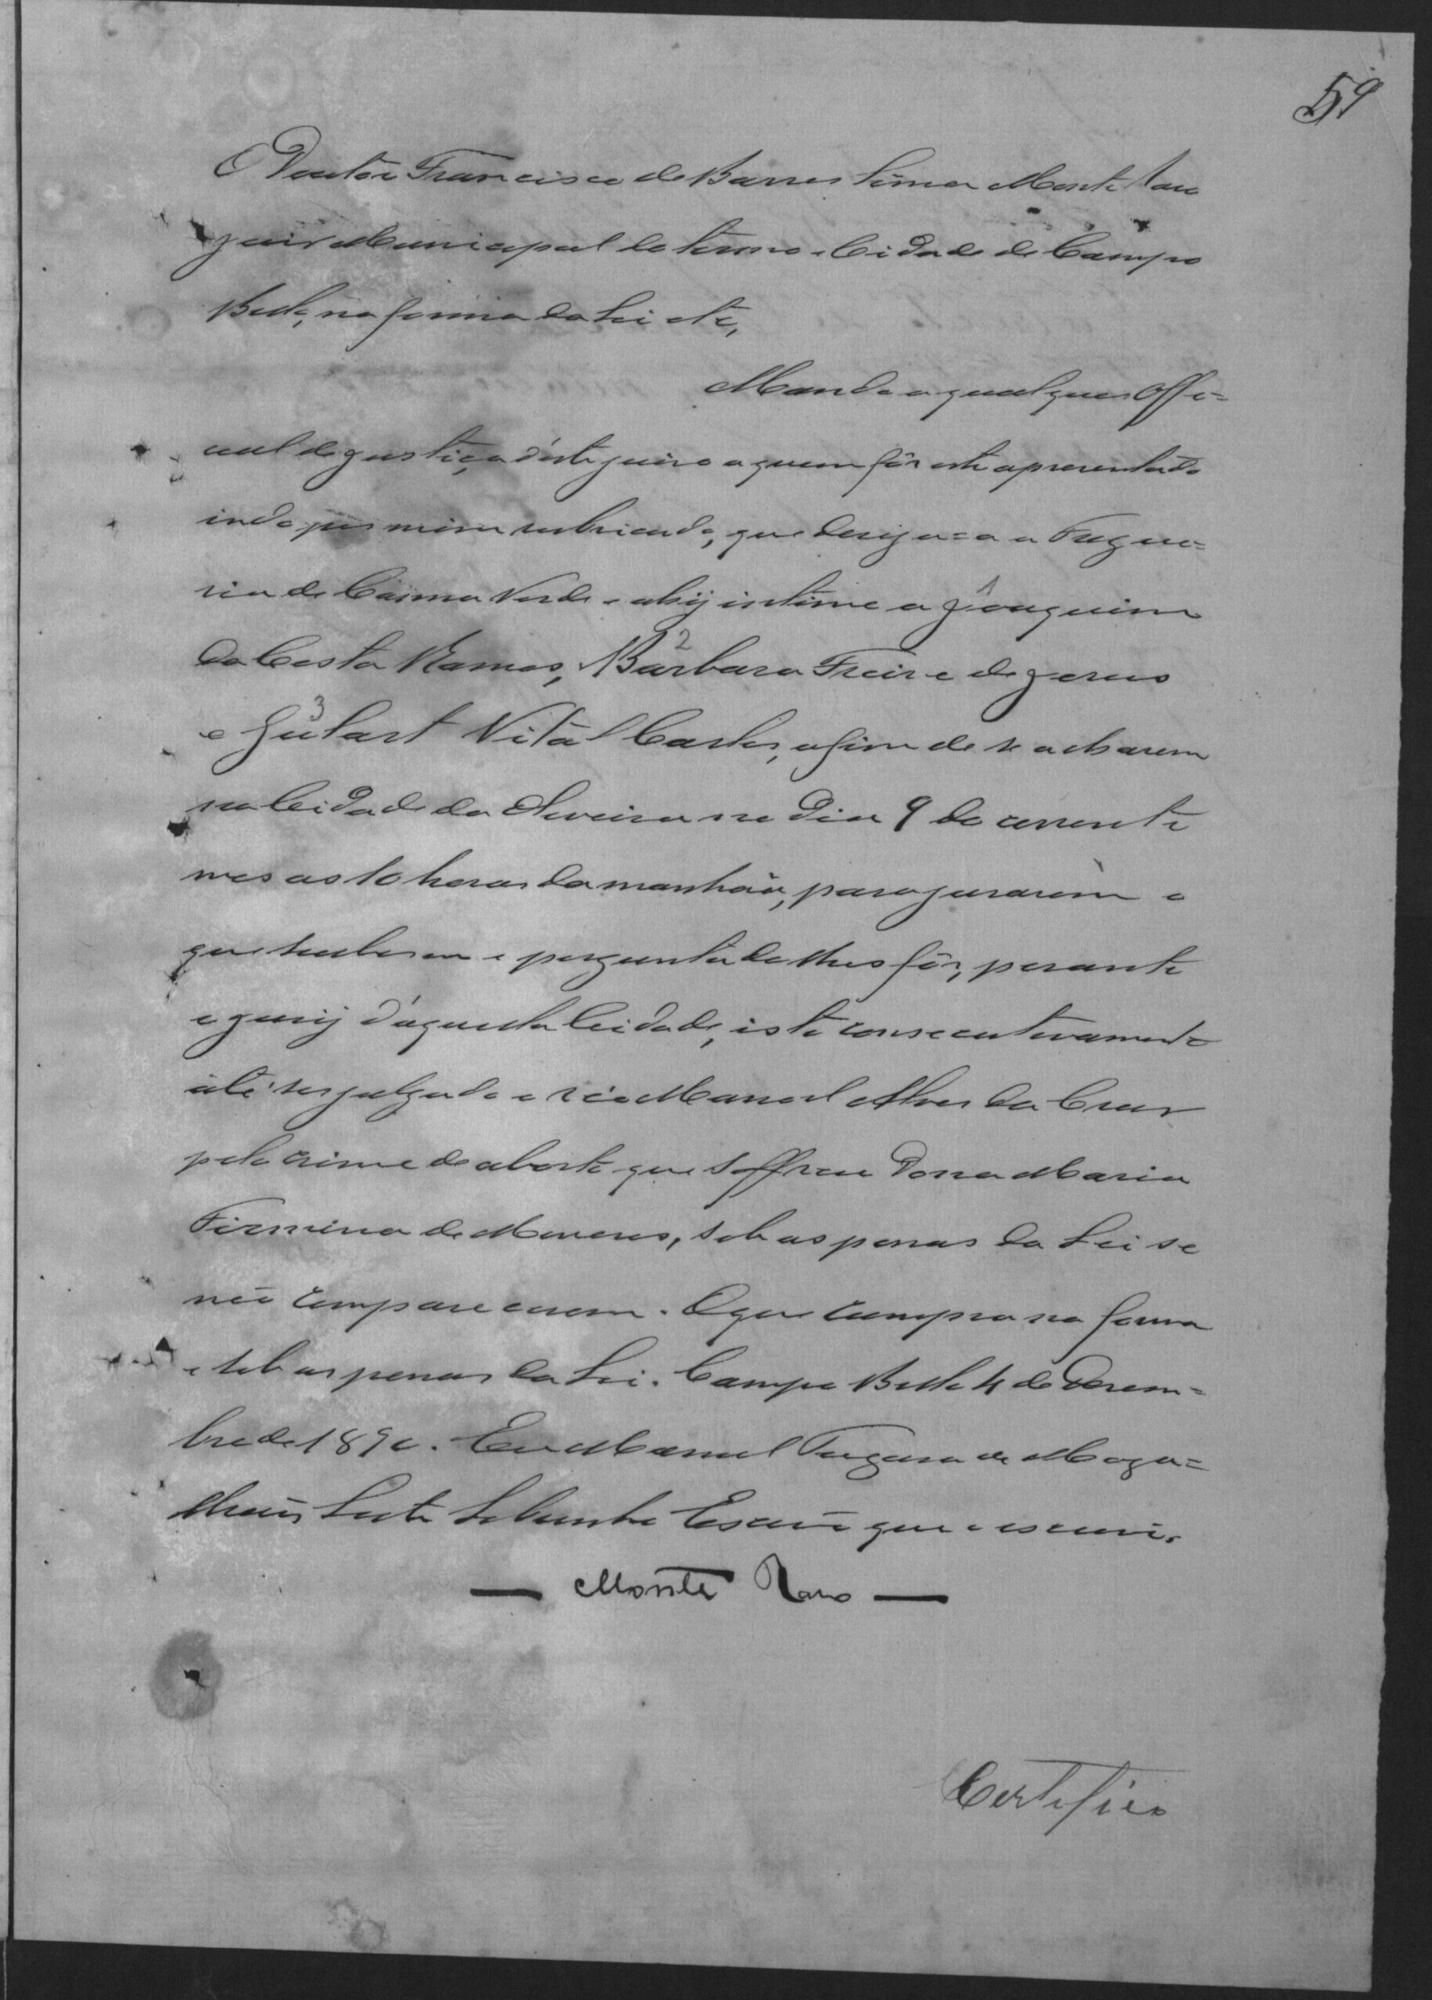 59
O Doutor Francisco de Barros Lima Monte Raso
juiz Municipal do termo e Cidade de Campo
Bello, na forma da Lei etc,
Mando a qualquer Offi=
cial de justiça d'este juizo a quem fôr este apresentado
indo por mim rubricado, que derija=se a Fregue=
sia de Canna Verde e ahy intime a 1 Joaquim
da Costa Ramos, 2 Barbara Freire de Jesus
e 3 Gulart Vital Carlos, afim de se acharem
na Cidade da Oliveira no dia 9 do corrente
mes as 10 horas da manhãa, para jurarem o
que souberem e perguntado lhes fôr, perante
o jury d'aquella Cidade, isto consecutivamente
até ser julgado o réo Manoel Alves da Cruz
pelo crime de aborto que soffreu Dona Maria
Firmina de Meneses, sob as penas da Lei se
não comparecerem. O que cumpra na forma
e sob as penas da Lei. Campo Bello 4 de Dezem=
bro de 1890. Eu Manoel de Maga=
lhães Leite Escrivão que o escrevi.
— Monte Raso —
Certifico